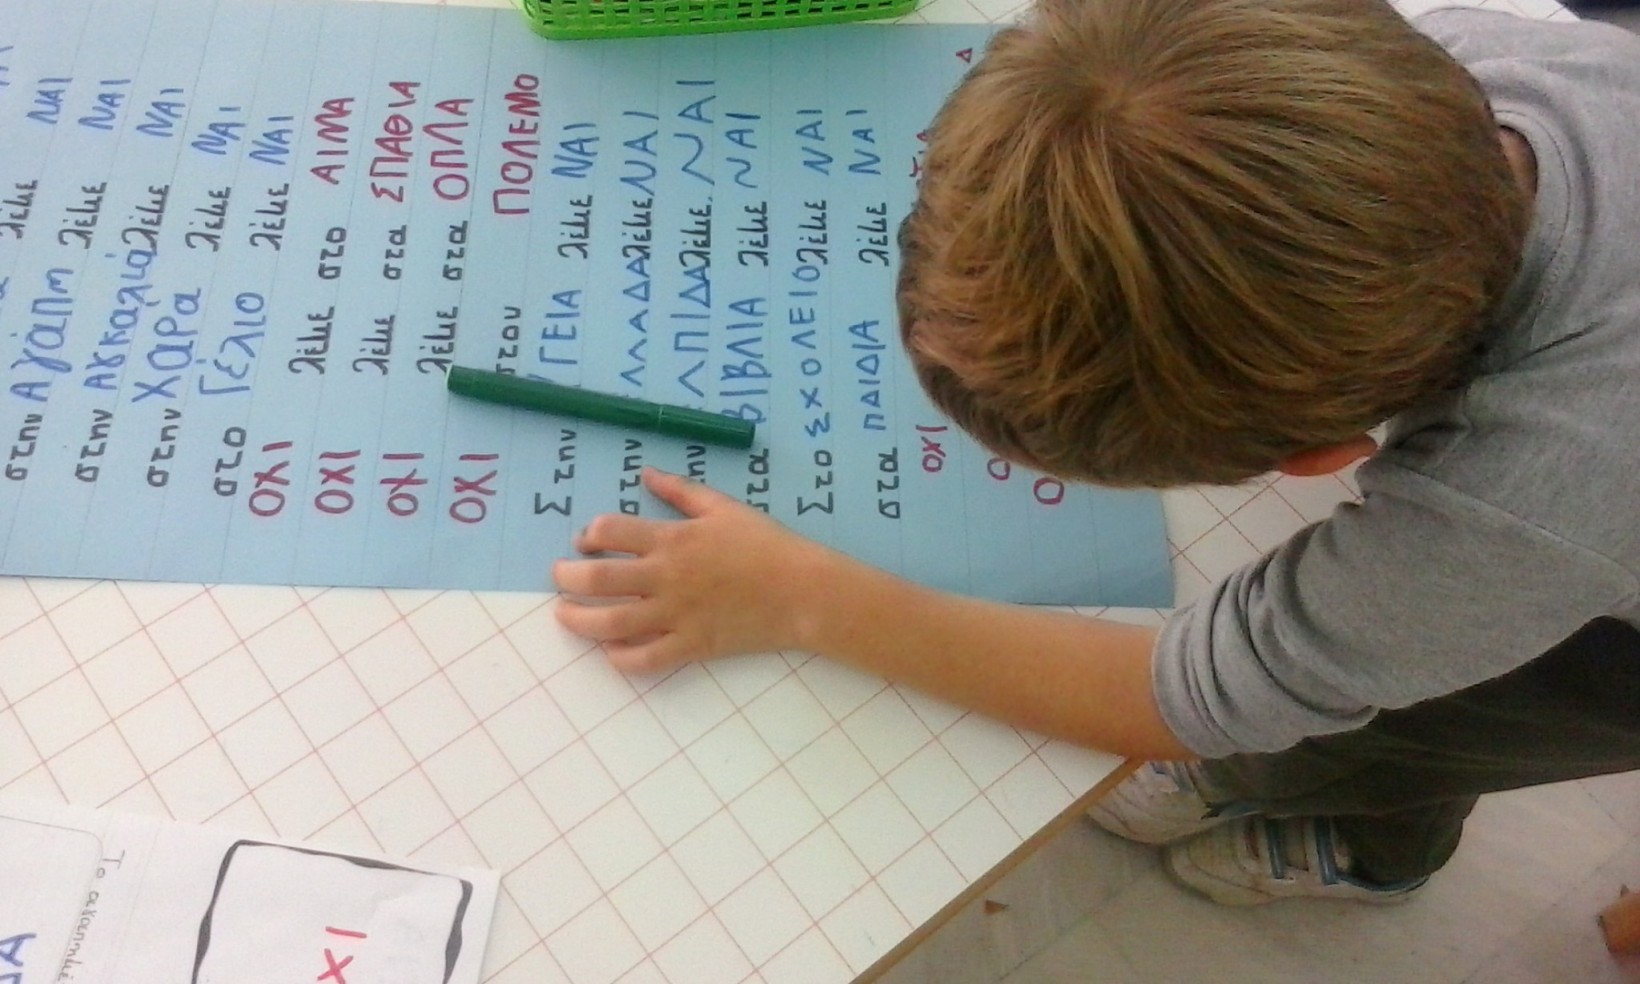 λέμε
στην Αγάπη λέμε ΝΑΙ
στην Αγκαλιά λέμε ΝΑΙ
στην Χαρά λέμε ΝΑΙ
στο Γέλιο λέμε ΝΑΙ
ΟΧΙ λέμε στο ΑΙΜΑ
ΟΧΙ λέμε στα ΣΠΑΘΙΑ
ΟΧΙ λέμε στα ΟΠΛΑ
ΟΧΙ στον ΠΟΛΕΜΟ
Στην ΓΕΙΑ λέμε ΝΑΙ
στην ΛΛΑΔΑ λέμε ΝΑΙ
ην ΛΠΙΔΑ λέμε ΝΑΙ
στα ΒΙΒΛΙΑ λέμε ΝΑΙ
Στο ΣΧΟΛΕΙΟ λέμε ΝΑΙ
στα ΠΑΙΔΙΑ λέμε ΝΑΙ
ΟΧΙ
Το
ΧΙ